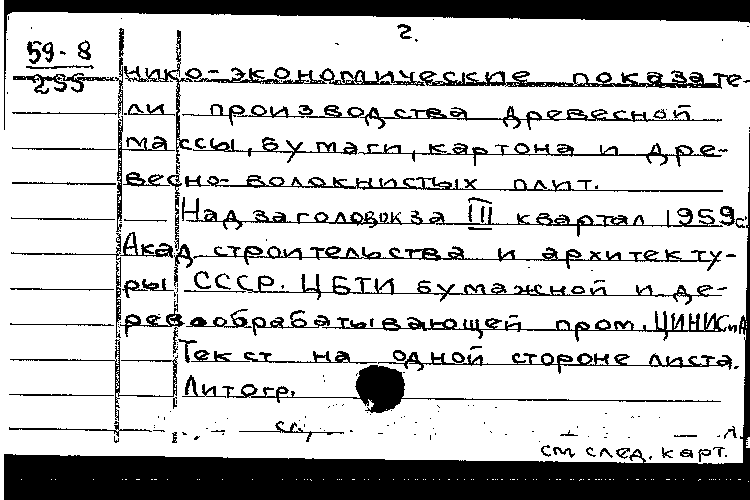 2.
59-8
255
нико-экономические показате-
ли производства древесной
массы, бумаги, картона и дре-
весно-волокнистых плит.
Над заголовок за III квартал 1959г.
Акад. строительства и архитекту-
ры СССР. ЦБТИ бумажной и де-
ревообрабатывающей пром. ЦИНИС и А
Текст на одной стороне листа.
Литогр.
сл.,
л.
см след. карт.